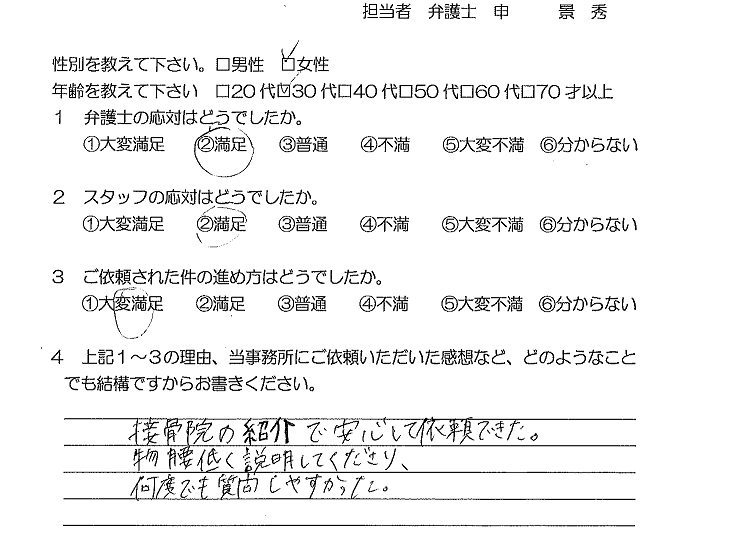 担当者　弁護士　申　　景　秀
性別を教えて下さい。□男性　□女性
年齢を教えて下さい　□20代□30代□40代□50代□60代□70才以上
1　弁護士の応対はどうでしたか。
①大変満足　②満足　③普通　④不満　⑤大変不満　⑥分からない
2　スタッフの応対はどうでしたか。
①大変満足　②満足　③普通　④不満　⑤大変不満　⑥分からない
3　ご依頼された件の進め方はどうでしたか。
①大変満足　②満足　③普通　④不満　⑤大変不満　⑥分からない
4　上記1～3の理由、当事務所にご依頼いただいた感想など、どのようなこと
でも結構ですからお書きください。
接骨院の紹介で安心して依頼できた。
物腰低く説明してくださり、
何度でも質問しやすかった。